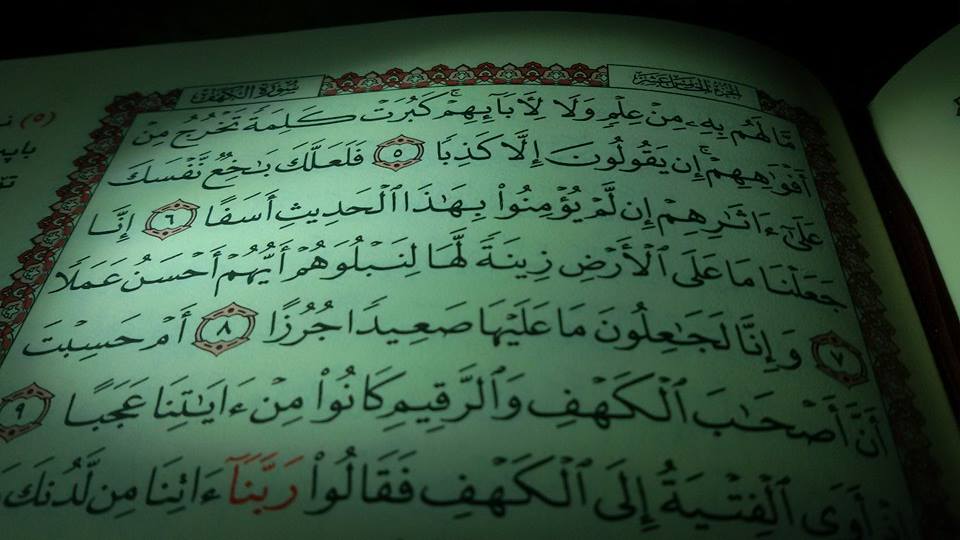 سُورَةُ الكَهْفِ
الجُزْءُ الخَامِسَ عَشَرَ
مَّا لَهُم بِهِۦ مِنْ عِلْمٍ وَلَا لِأَبَآئِهِمْۚ كَبُرَتْ كَلِمَةً تَخْرُجُ مِنْ
أَفْوَٰهِهِمْۚ إِن يَقُولُونَ إِلَّا كَذِبًا ٥ فَلَعَلَّكَ بَٰخِعٌ نَّفْسَكَ
عَلَىٰٓ ءَاثَٰرِهِمْ إِن لَّمْ يُؤْمِنُوا۟ بِهَٰذَا ٱلْحَدِيثِ أَسَفًا ٦ إِنَّا
جَعَلْنَا مَا عَلَى ٱلْأَرْضِ زِينَةً لَّهَا لِنَبْلُوَهُمْ أَيُّهُمْ أَحْسَنُ عَمَلًا
٧ وَإِنَّا لَجَٰعِلُونَ مَا عَلَيْهَا صَعِيدًا جُرُزًا ٨ أَمْ حَسِبْتَ
أَنَّ أَصْحَٰبَ ٱلْكَهْفِ وَٱلرَّقِيمِ كَانُوا۟ مِنْ ءَايَٰتِنَا عَجَبًا ٩
إِذْ أَوَى ٱلْفِتْيَةُ إِلَى ٱلْكَهْفِ فَقَالُوا۟ رَبَّنَآ ءَاتِنَا مِن لَّدُنكَ
(٥)